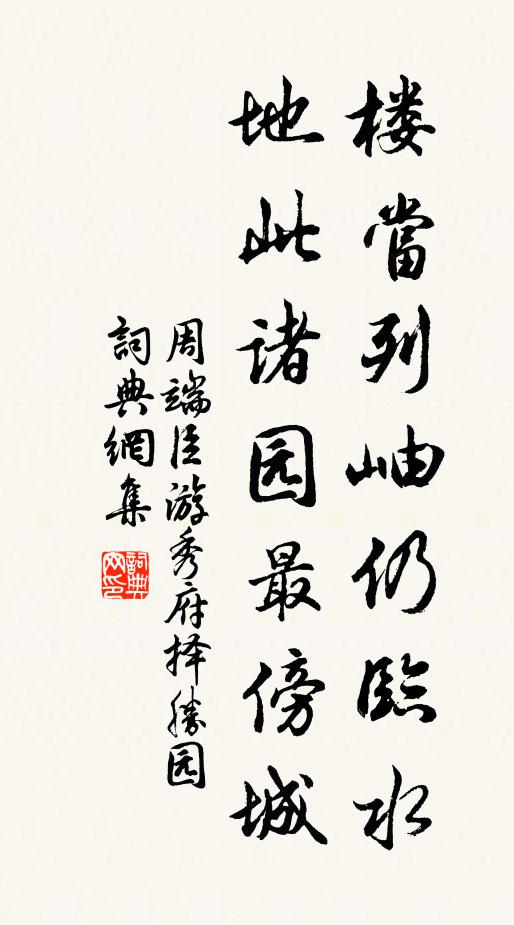 楼當列岫仍臨水
地此诸园最傍城
周端臣游秀府择勝园
詞典網集
詞典
网印